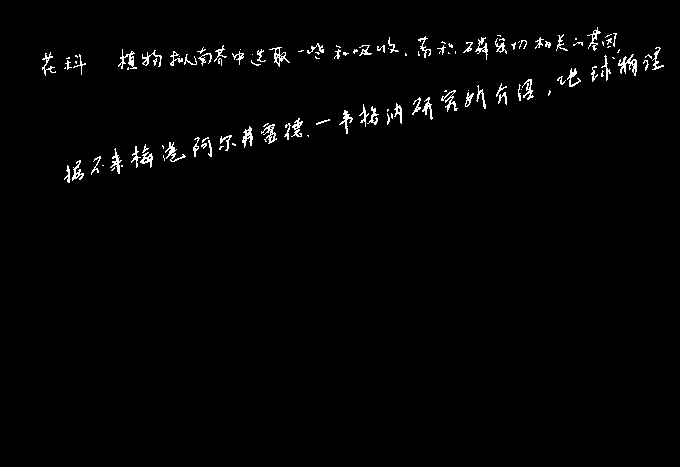 花科 植物拟南芥中选取一些和吸收、蓄积磷密切相关的基因,
据不来梅港阿尔弗雷德·一韦格纳研究所介绍,地球物理